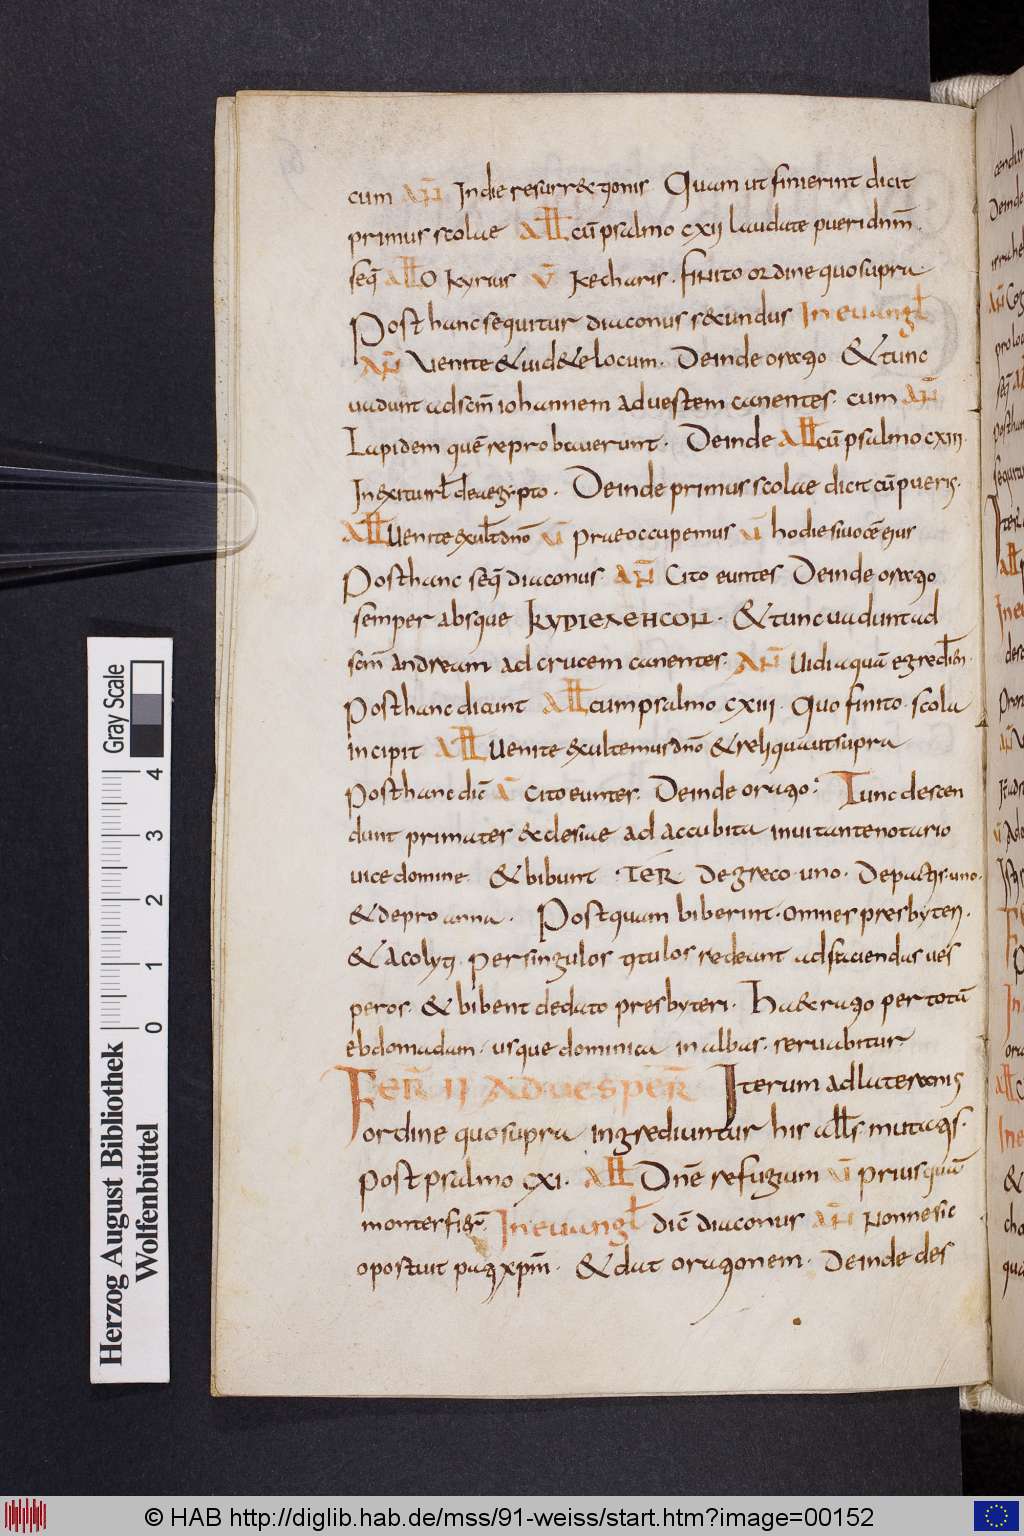 cum AÑ In die resurr&tionis Quam ut finierint dicit
primus scolae All cū psalmo cxii laudate pueri dnm̄.
seq̄ All O kyrius v̄ Kecharis. finito ordine quo supra
Post hanc sequitur diaconus s&undus In euangł
AÑ Uenite & uid&e locum. Deinde oratio & tunc
uadunt ad scm̄ iohannem ad uestem canentes. cum AÑ
Lapidem quē reprobauerunt. Deinde All cū psalmo cxiii.
In exitu isrł de aegypto. Deinde primus scolae dicit cū pueris.
All Uenite exultꝫ dnō v̄ praeoccupemus v̄ hodie si uocē eius
Post hanc seq̄ diaconus. AÑ Cito euntes Deinde oratio
semper absque kyrieleison. & tunc uadunt ad
scm̄ andream ad crucem canentes. AÑ Uidi aquā egredien̄.
Post hanc dicunt All cum psalmo cxiii. Quo finito. scola
incipit All Uenite exultemus dnō & reliqua ut supra
Post hanc dic̄ v̄ Cito euntes. Deinde oratio. Tunc descen
dunt primates ecclesiae ad accubita inuitante notario
uice domine. & bibunt. TER. De greco uno. De pactis uno.
& de pro anna. Postquam biberint. omnes presbyteri.
& acolyti. per singulos titulos redeant ad faciendas ues
peros. & bibent de dato presbyteri. Haec ratio per totā
ebdomadam. usque dominica in albas. seruabitur
FER̄ II AD UESPER̄ Iterum ad lateranis
ordine quo supra ingrediuntur his alłs mutatis.
post psalmo cxi. All Dnē refugium v̄ priusquā
montes fier̄. In euangł dic̄ diaconus AÑ Nonne sic
oportuit pati xpm̄. & dat orationem. Deinde des
Gray Scale
0 1 2 3 4
Herzog August Bibliothek
Wolfenbüttel
© HAB http://diglib.hab.de/mss/91-weiss/start.htm?image=00152